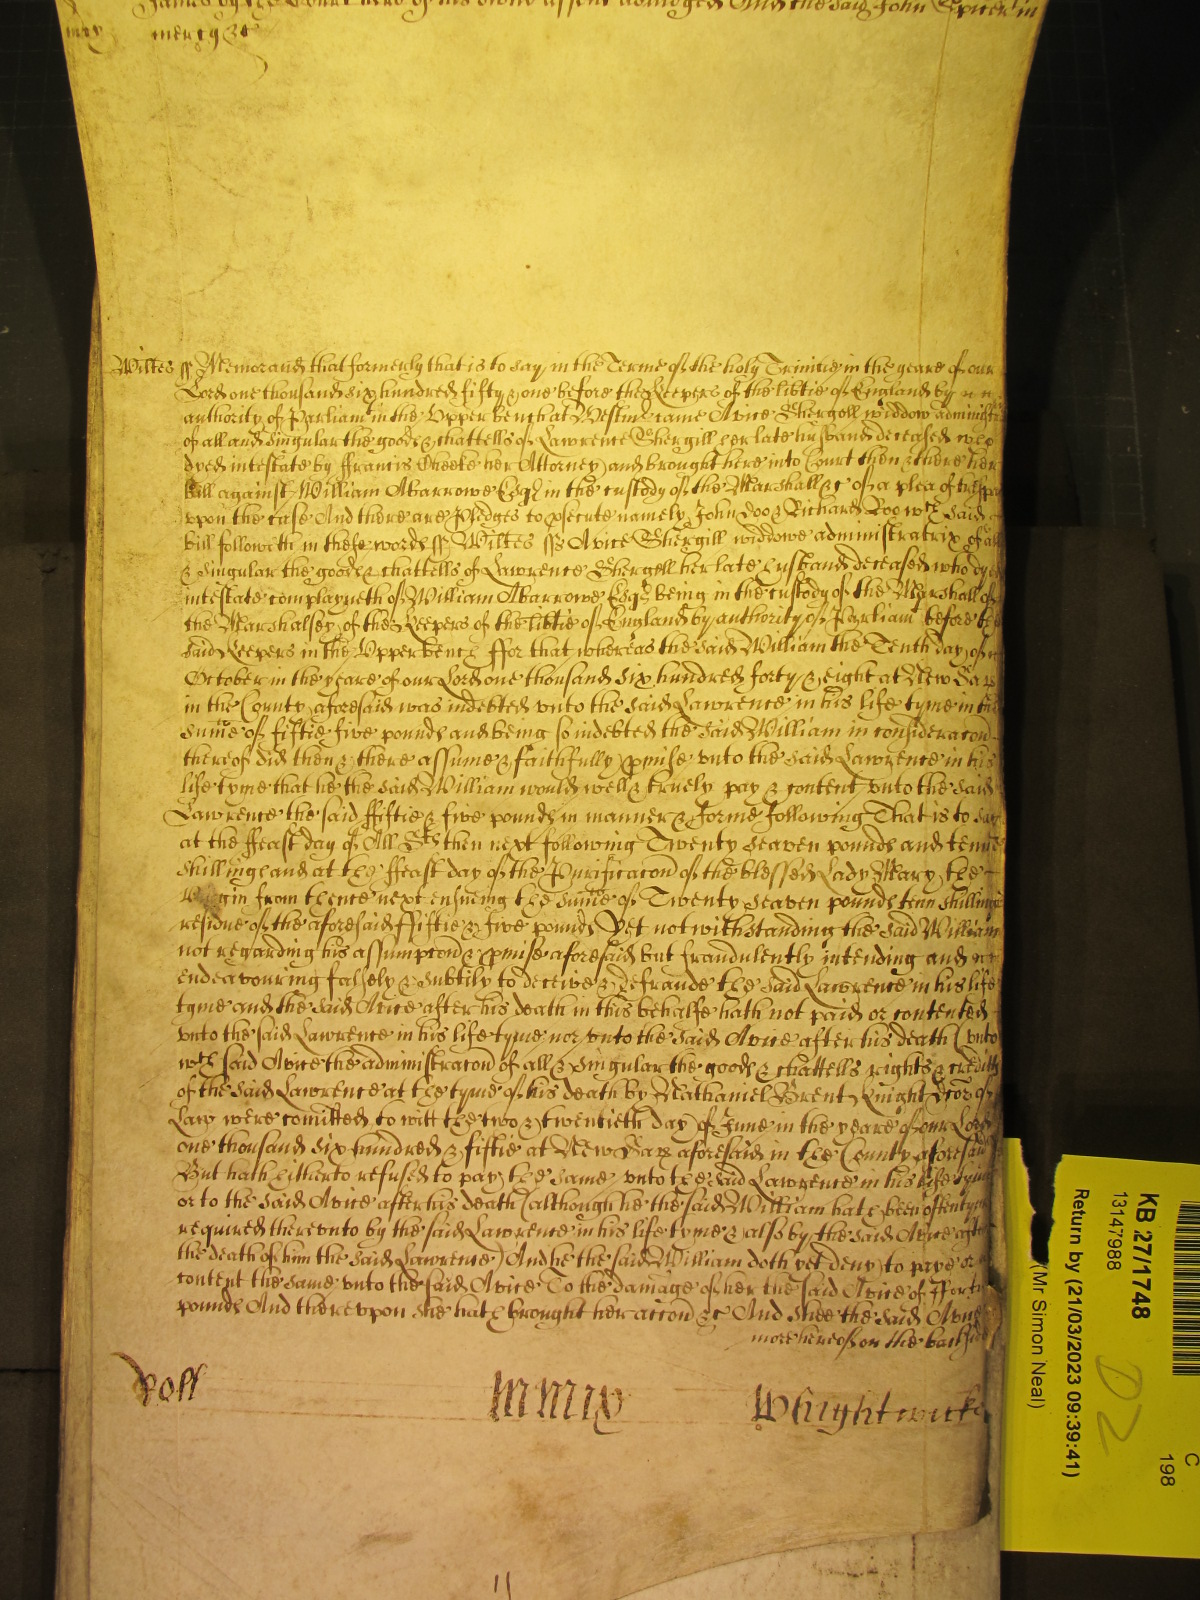 James by the Court here of his owne assent adiudged And the said John Spicer in
mercy &c
Wiltes ss Memorand that formerly that is to say in the Terme of the holy Trinitie in the yeare of our
Lord one thousand six hundred fifty & one before the Keepers of the libtie of England by
authority of Parliam in the Upper bench at Westm came Avice Shergoll widdow administ
of all and singular the goods & chattells of Lawrence Shergill her late husband deceased who
dyed intestate by ffrancis Cheeke her Attorney and brought here into Court then & there her
bill against William Abarrowe Esq in the custody of the Marshall &c of a plea of trespas
vpon the case And there are Pledges to psecute namely John Doo & Richard Roo wch said
bill followeth in these words ss Wiltes ss Avice Shergill widdowe administratrix of all
& singular the goods & chattells of Lawrence Shergell her late husband deceased who dyed
intestate complayneth of William Abarrowe Esq being in the custody of the Marshall of
the Marshalsey of the Keepers of the libtie of England by authority of Parliam before the
said Keepers in the Vpper bench ffor that whereas the said William the Tenth day of
October in the yeare of our Lord one thousand six hundred forty & eight at New Sar
in the County aforesaid was indebted vnto the said Lawrence in his life tyme in the
sume of fiftie five pounds and being so indebted the said William in consideracon
thereof did then & there assume & faithfully pmise vnto the said Lawrence in his
life tyme that he the said William would well & truely pay & content vnto the said
Lawrence the said ffiftie & five pounds in manner & forme following That is to say
at the ffeast day of All Sts then next following Twenty seaven pounds and tenne
shillings and at the ffeast day of the Purificacon of the blessed Lady Mary the
Virgin from thence next ensueing the sume of Twenty seaven pounds tenn shillings
residue of the aforesaid ffiftie & five pounds Yet notwithstanding the said William
not regarding his assumpcon & pmise aforesaid but fraudulently intending and
endeavouring falsely & subtily to deceive & defraude the said Lawrence in his life
tyme and the said Avice after his death in this behalfe hath not paid or contented
vnto the said Lawrence in his life tyme nor vnto the said Avice after his death (vnto
wch said Avice the administracon of all & singular the goods & chattells rights & creditts
of the said Lawrence at the tyme of his death by Nathaniel Brent Knight Dcor of
Law were comitted to witt the two & twentieth day of June in the yeare of our Lord
one thousand six hundred & fiftie at New Sar aforesaid in the County aforesaid
But hath hitherto refused to pay the same vnto the said Lawrence in his life tyme
or to the said Avice after his death (although he the said William hath been oftentymes
required therevnto by the said Lawrence in his life tyme & also by the said Avice after
the death of him the said Lawrence) And he the said William doth yet deny to paye or
content the same vnto the said Avice To the damage of her the said Avice of fforty
pounds And therevpon she hath brought her accon &c And shee the said Avice
more hereof on the backside
Roll MMIX Whightwicke
11
KB 27/1748
13147988
Return by (21/03/2023 09:39:41)
(Mr Simon Neal)
D2
C
198